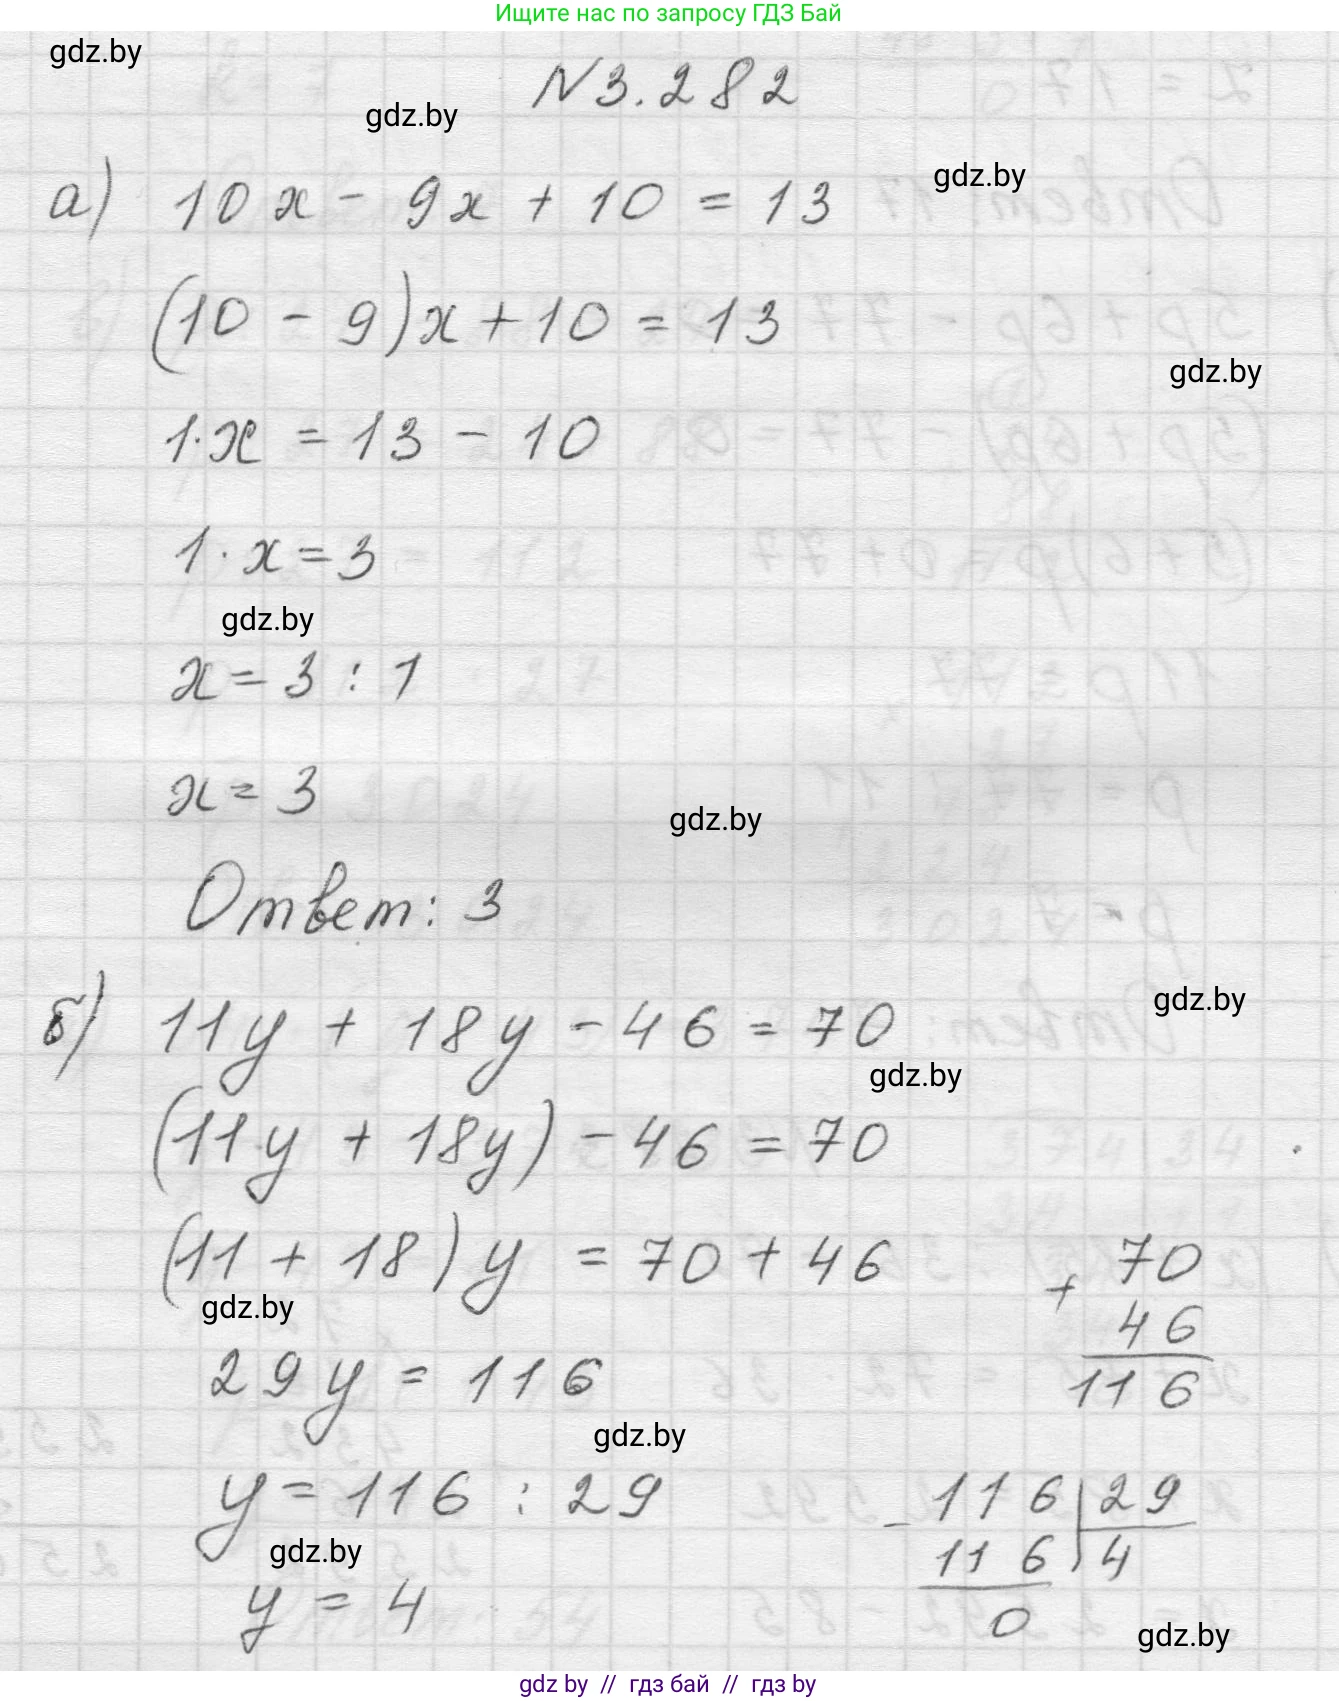 Ищите нас по запросу ГДЗ Бай
gdz.by
N3.282
gdz.by
gdz.by
а) 10x - 9x + 10 = 13
(10 - 9)x + 10 = 13
gdz.by
1·x = 13 - 10
1·x = 3
gdz.by
x = 3 : 1
x = 3
gdz.by
Ответ: 3
gdz.by
б) 11y + 18y - 46 = 70
gdz.by
(11y + 18y) - 46 = 70
(11 + 18)y = 70 + 46
+ 70
46
116
gdz.by
29y = 116
gdz.by
y = 116 : 29
- 116 | 29
116 | 4
0
gdz.by
y = 4
gdz.by
gdz by // гдз бай // gdz by